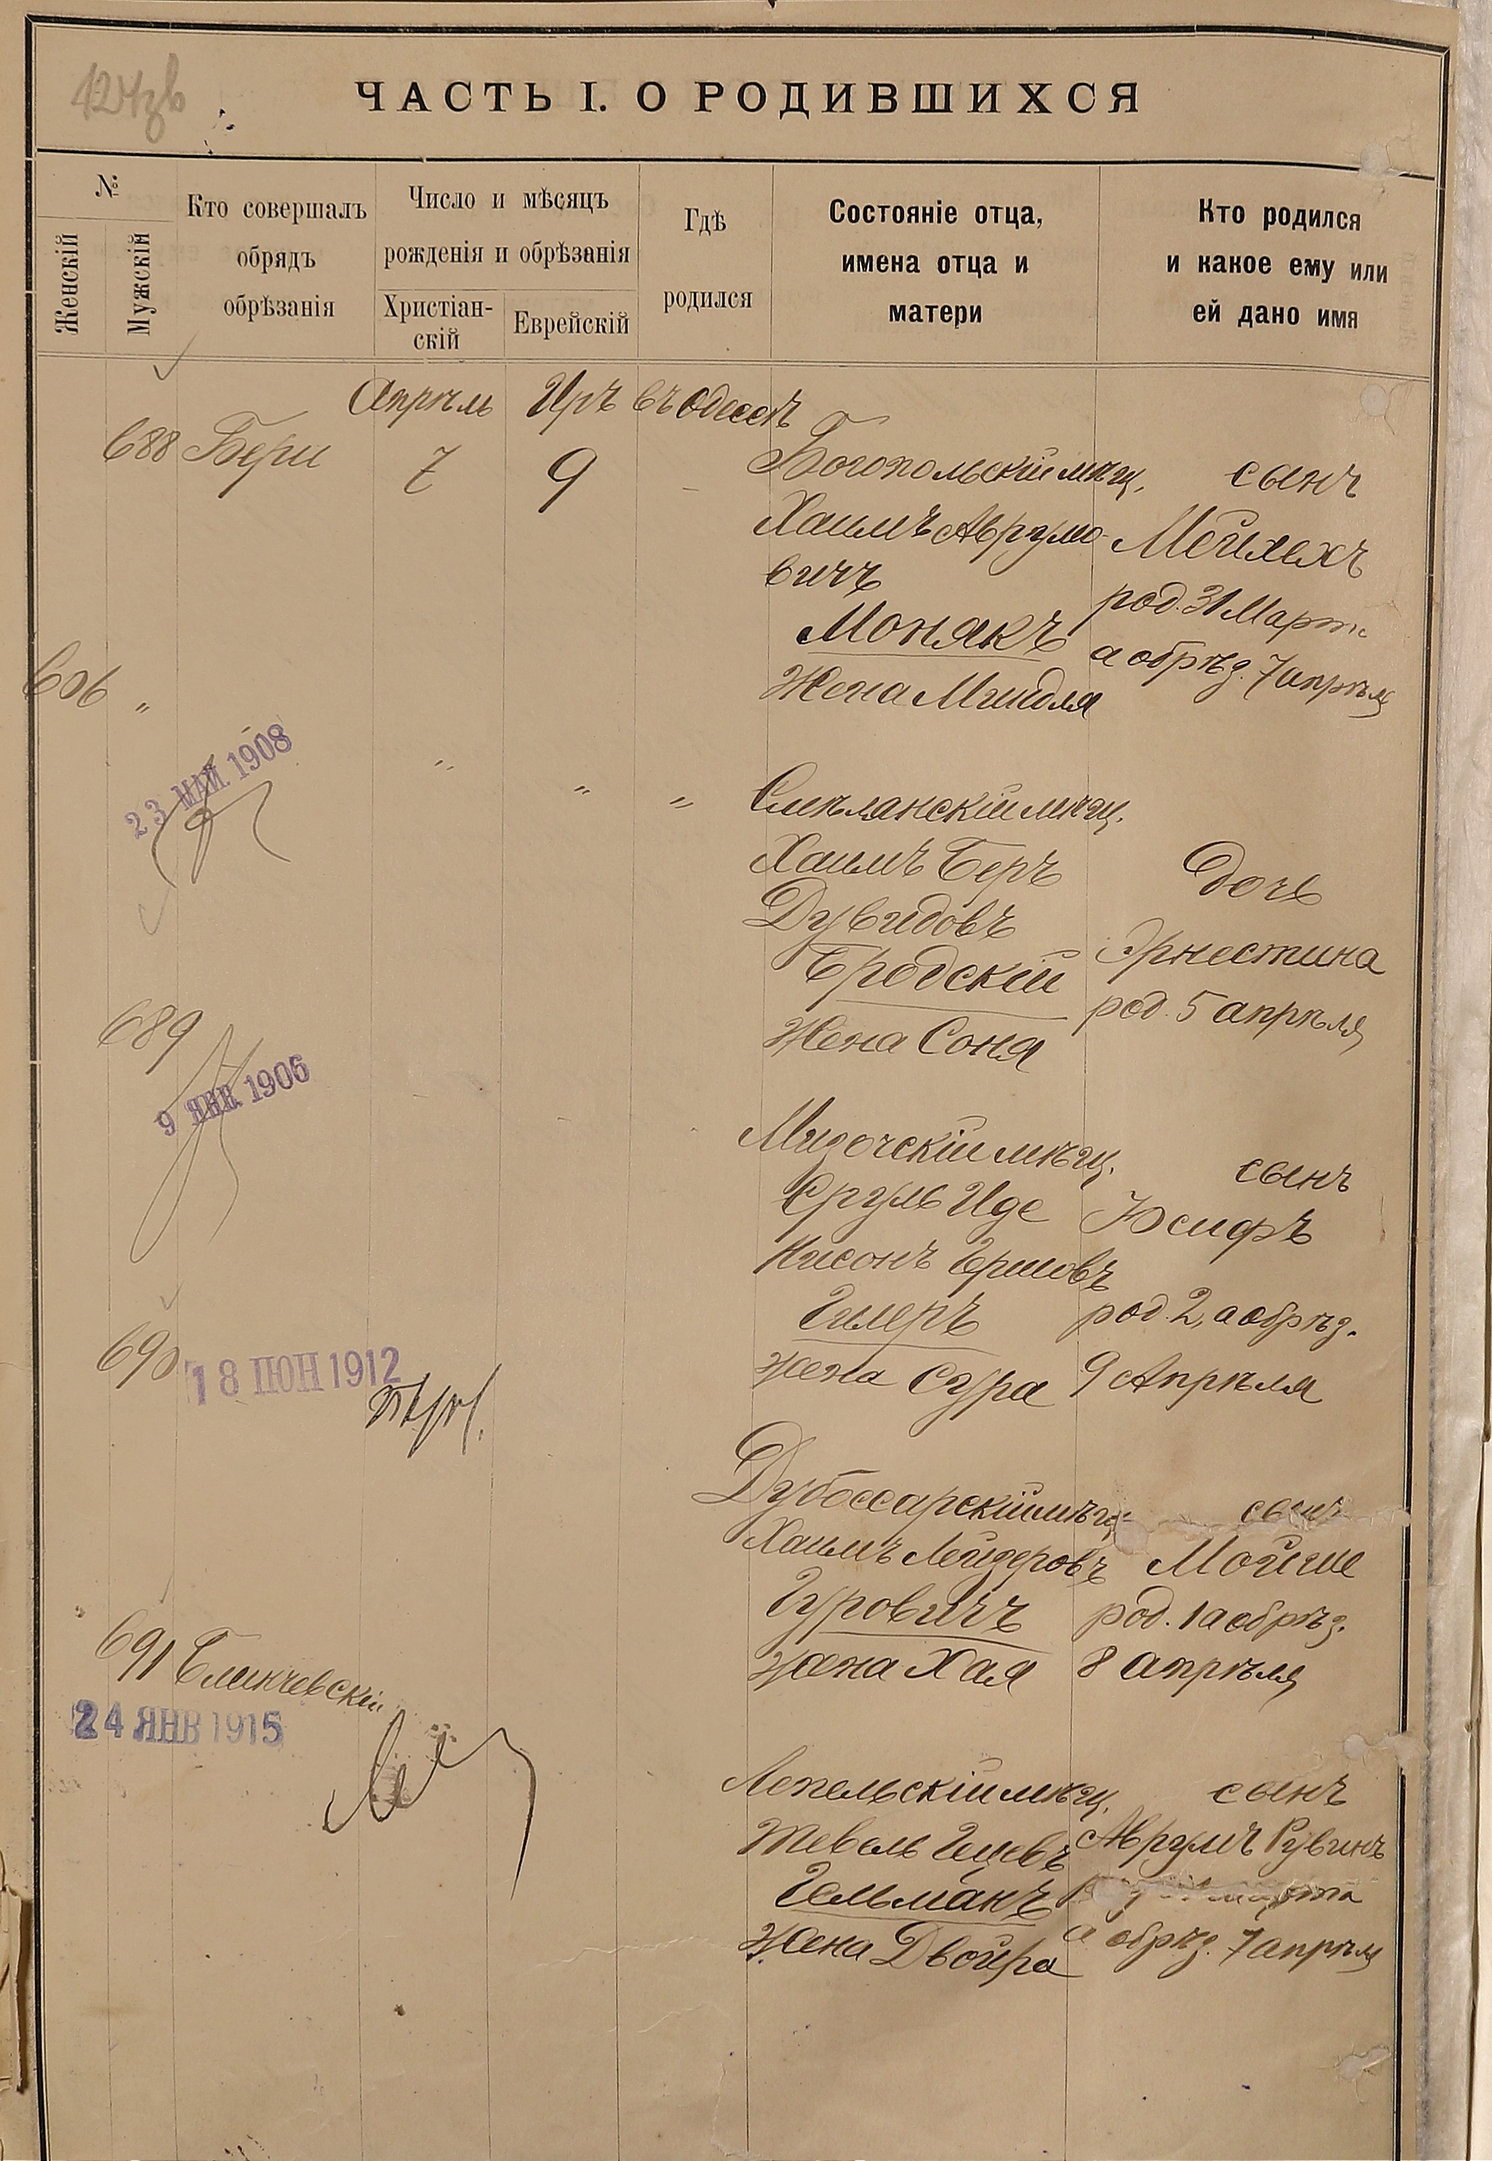 ЧАСТЬ I. О РОДИВШИХСЯ
№
Женскій
Мужскій
Кто совершалъ
обрядъ
обрѣзанія
Число и мѣсяцъ
рожденія и обрѣзанія
Христіан-
скій
Еврейскій
Гдѣ
родился
Состояніе отца,
имена отца и
матери
Кто родился
и какое ему или
ей дано имя
Апрѣль Іиръ въ Одессѣ
688 7 9
Богопольскій мѣщ.
Хаимъ Аврумо-
вичъ
Монякъ
Жена Миндля
сынъ
Мейлехъ
род. 31 Марта
а обрѣз. 7 апрѣля
606 "
23 МАЙ 1908
" " "
Смѣлянскій мѣщ.
Хаимъ Беръ
Дувидовъ
Бродскій
Жена Соня
дочь
Эрнестина
род. 5 апрѣля
689
9 ЯНВ. 1906
мѣщ.
Сруль Иде
Нисонъ Ершовъ
Гилеръ
Жена Сура
сынъ
Юсифъ
род. 2, а обрѣз.
9 Апрѣля
690
18 ІЮН 1912
Дубоссарскій мѣщ.
Хаимъ Лейзеровъ
Гуровичъ
Жена Хая
сынъ
Мойше
род. 1 а обрѣз.
8 апрѣля
691
24 ЯНВ 1915
Лепельскій мѣщ.
Гельманъ
Жена Двойра
сынъ
Аврумъ Рувинъ
а обрѣз. 7 апрѣля